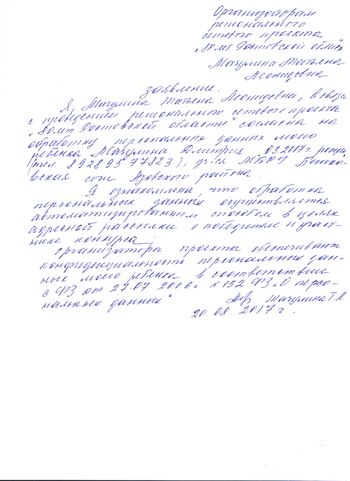 Организаторам
регионального
сетевого проекта
"80 лет Ростовской области"
Мачулина Татьяна
Леонидовна
заявление.
Я, Мачулина Татьяна Леонидовна, в связи
с проведением регионального сетевого проекта
"80 лет Ростовской области" согласна на
обработку персональных данных моего
ребенка Мачулина Дмитрия
(тел. 89289577823), МБОУ
сош Азовского района
Я ознакомлена, что обработка
персональных данных осуществляется
автоматизированным способом в целях
адресной рассылки о победителе и участ-
нике конкурса
организаторы проекта обеспечивают
конфиденциальность персональных дан-
ных моего ребенка в соответствии
с ФЗ от 27.07.2006г. №152 ФЗ "О персо-
нальных данных"
Мачулина Т.Л.
20.08.2017г.